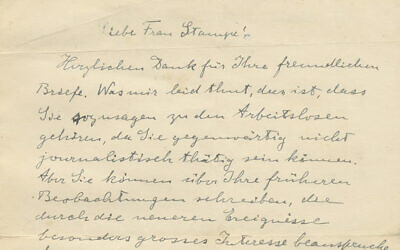 Liebe Frau Stampe!
Herzlichen Dank für Ihre freundlichen
Briefe. Was mir leid thut, das ist, dass
Sie sozusagen zu den Arbeitslosen
gehören, da Sie gegenwärtig nicht
journalistisch thätig sein können.
Aber Sie können über Ihre früheren
Beobachtungen schreiben, die
durch die neueren Ereignisse
besonders grosses Interesse beanspruche